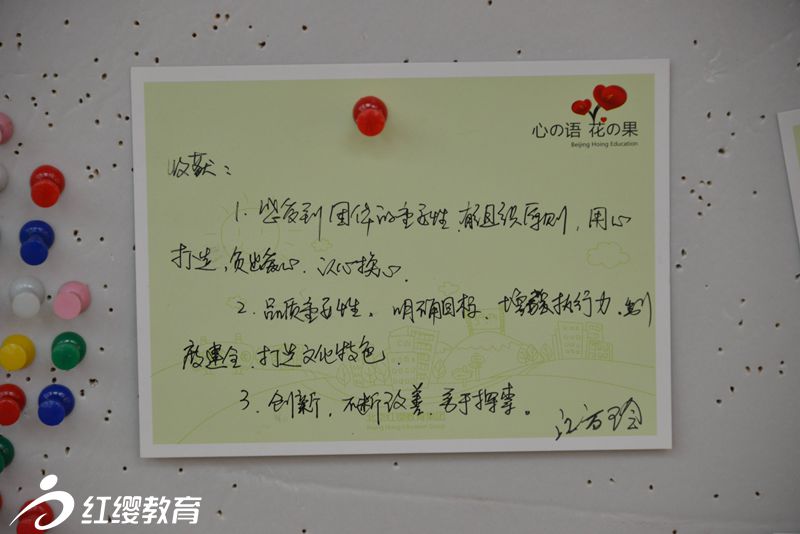 心の语 花の果
Beijing Hoing Education
收获：
1. 感受到团体的重要性，有组织原则，用心
打造，负出爱心，以心换心.
2. 品质重要性。明确目标，增强执行力，制
度建全，打造文化特色.
3. 创新，不断改善，善于探索。
红缨教育